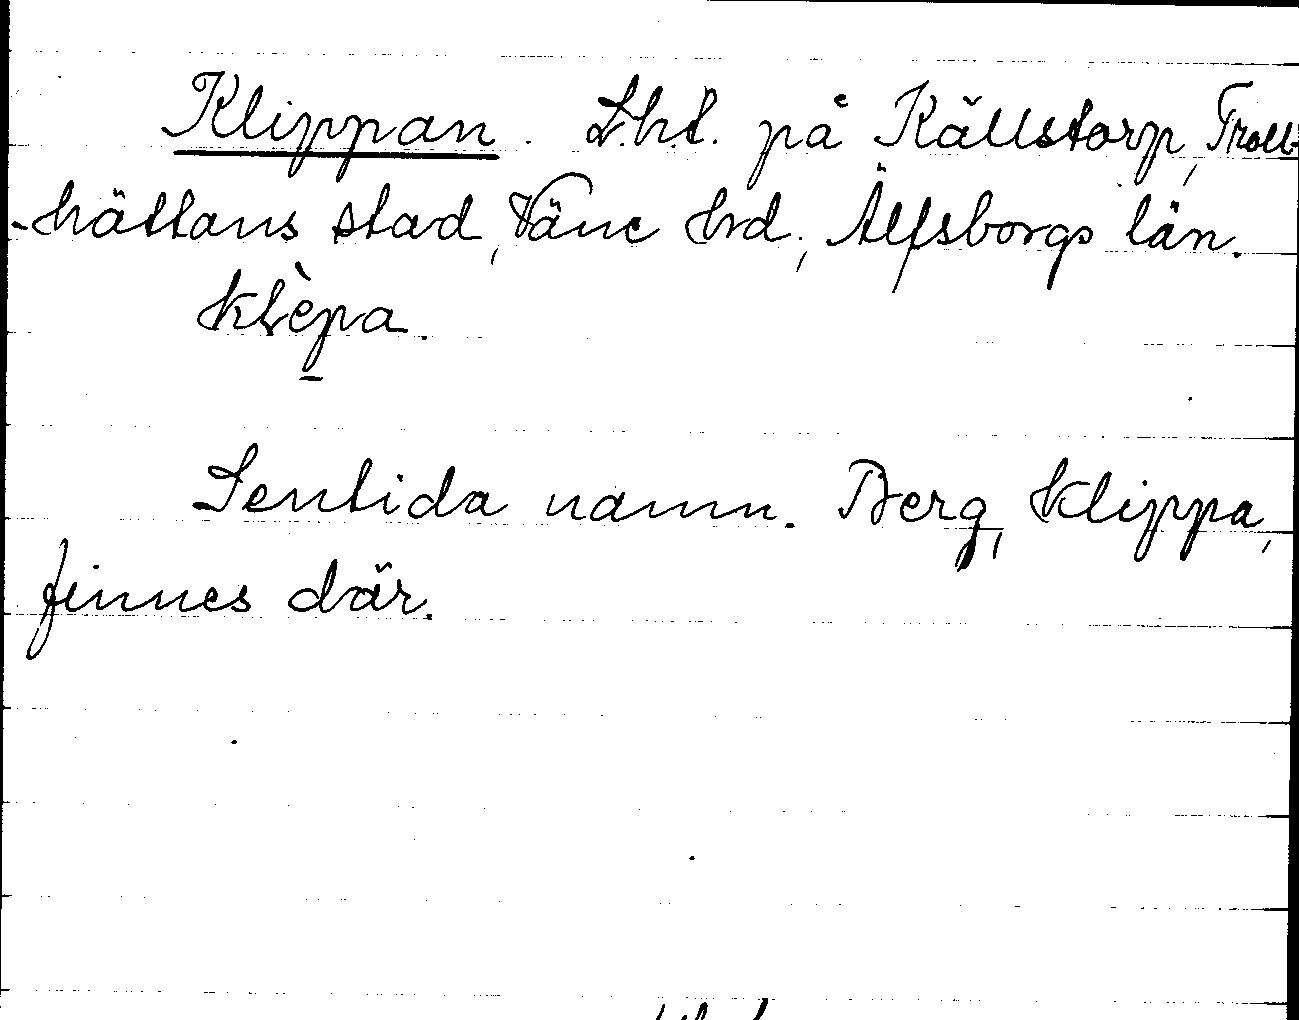 Klippan. Lht. på Källstorp, Troll-
-hättans stad, Väne hrd, Älfsborgs län.
klèpa.
Sentida namn. Berg, klippa,
finnes där.